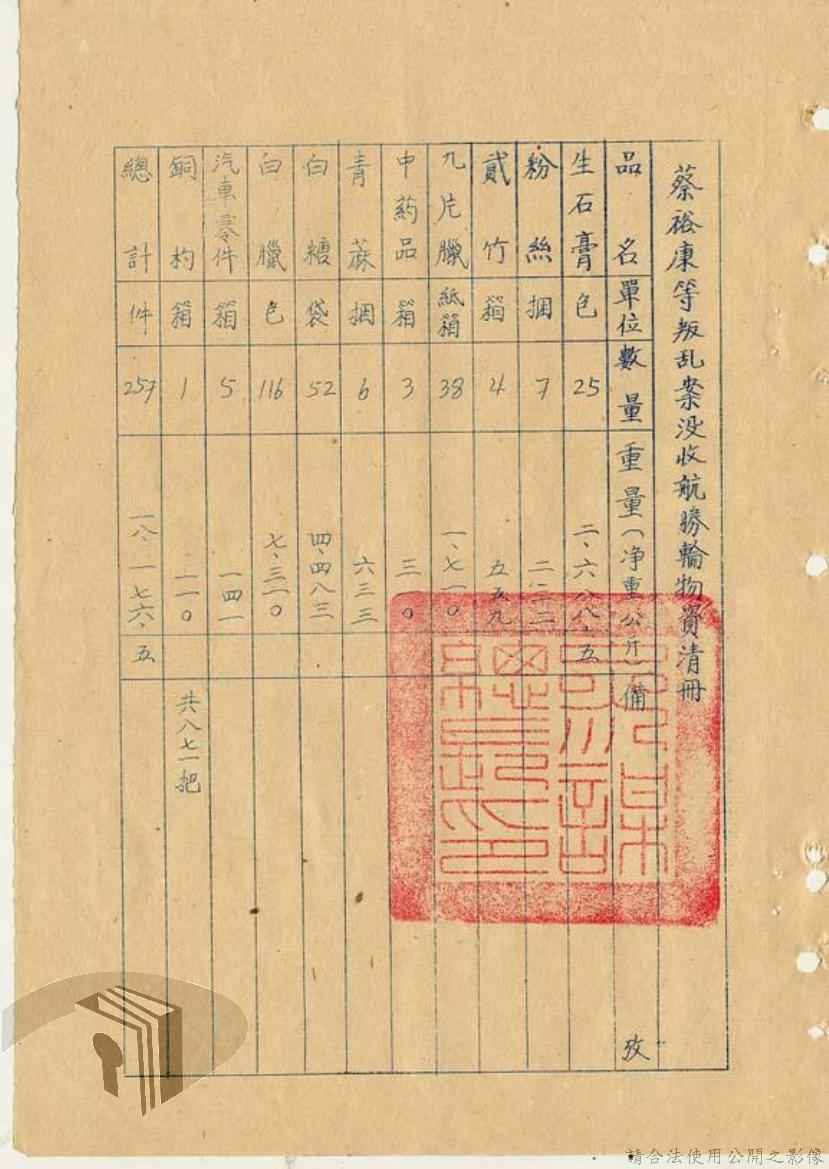 蔡裕康等叛乱案没收航勝輪物資清冊
品名 單位 數量 重量(净重公斤) 備攷
生石膏 包 25 二、六八八、五
粉絲 捆 7 二三二
貳竹 箱 4 五五九
九片臘 紙箱 38 一、七一〇
中药品 箱 3 三一〇
青蔴 捆 6 六三三
白糖 袋 52 四、四八三
白臘 包 116 七、三一〇
汽車零件 箱 5 一四一
銅杓 箱 1 一一〇 共八七一把
總計 件 257 一八、一七六、五
請合法使用公開之影像